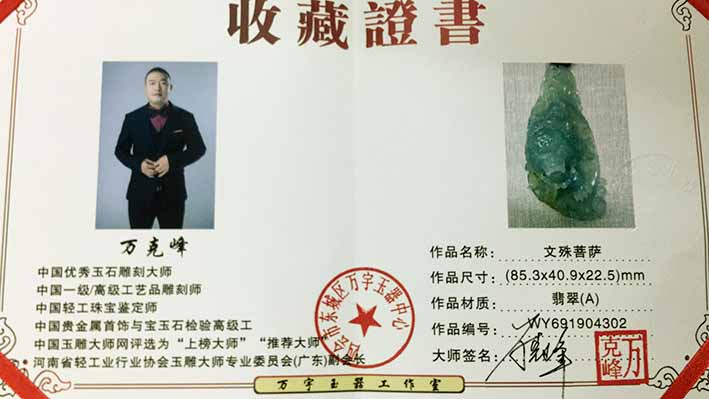 收藏證書
万克峰
中国优秀玉石雕刻大师
中国一级/高级工艺品雕刻师
中国轻工珠宝鉴定师
中国贵金属首饰与宝玉石检验高级工
中国玉雕大师网评选为“上榜大师”“推荐大师”
河南省轻工业行业协会玉雕大师专业委员会(广东)副会长
作品名称: 文殊菩萨
作品尺寸: (85.3x40.9x22.5)mm
作品材质: 翡翠(A)
作品编号: WY691904302
大师签名:
万克峰
四会市东城区万宇玉器中心
万宇玉器工作室